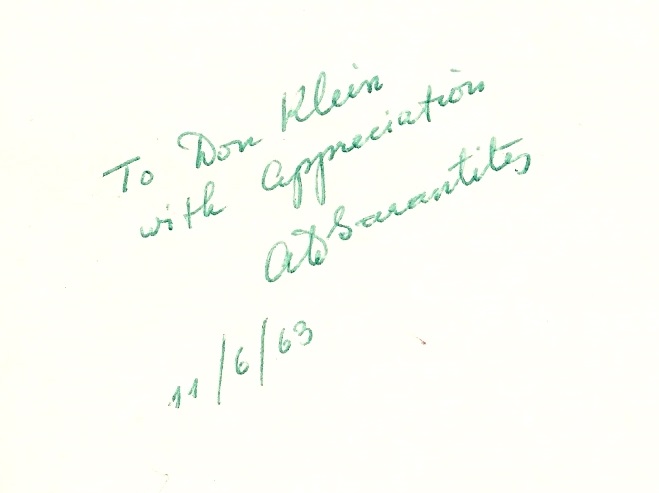 To Don Klein
with appreciation
ADSarantites
11/6/63